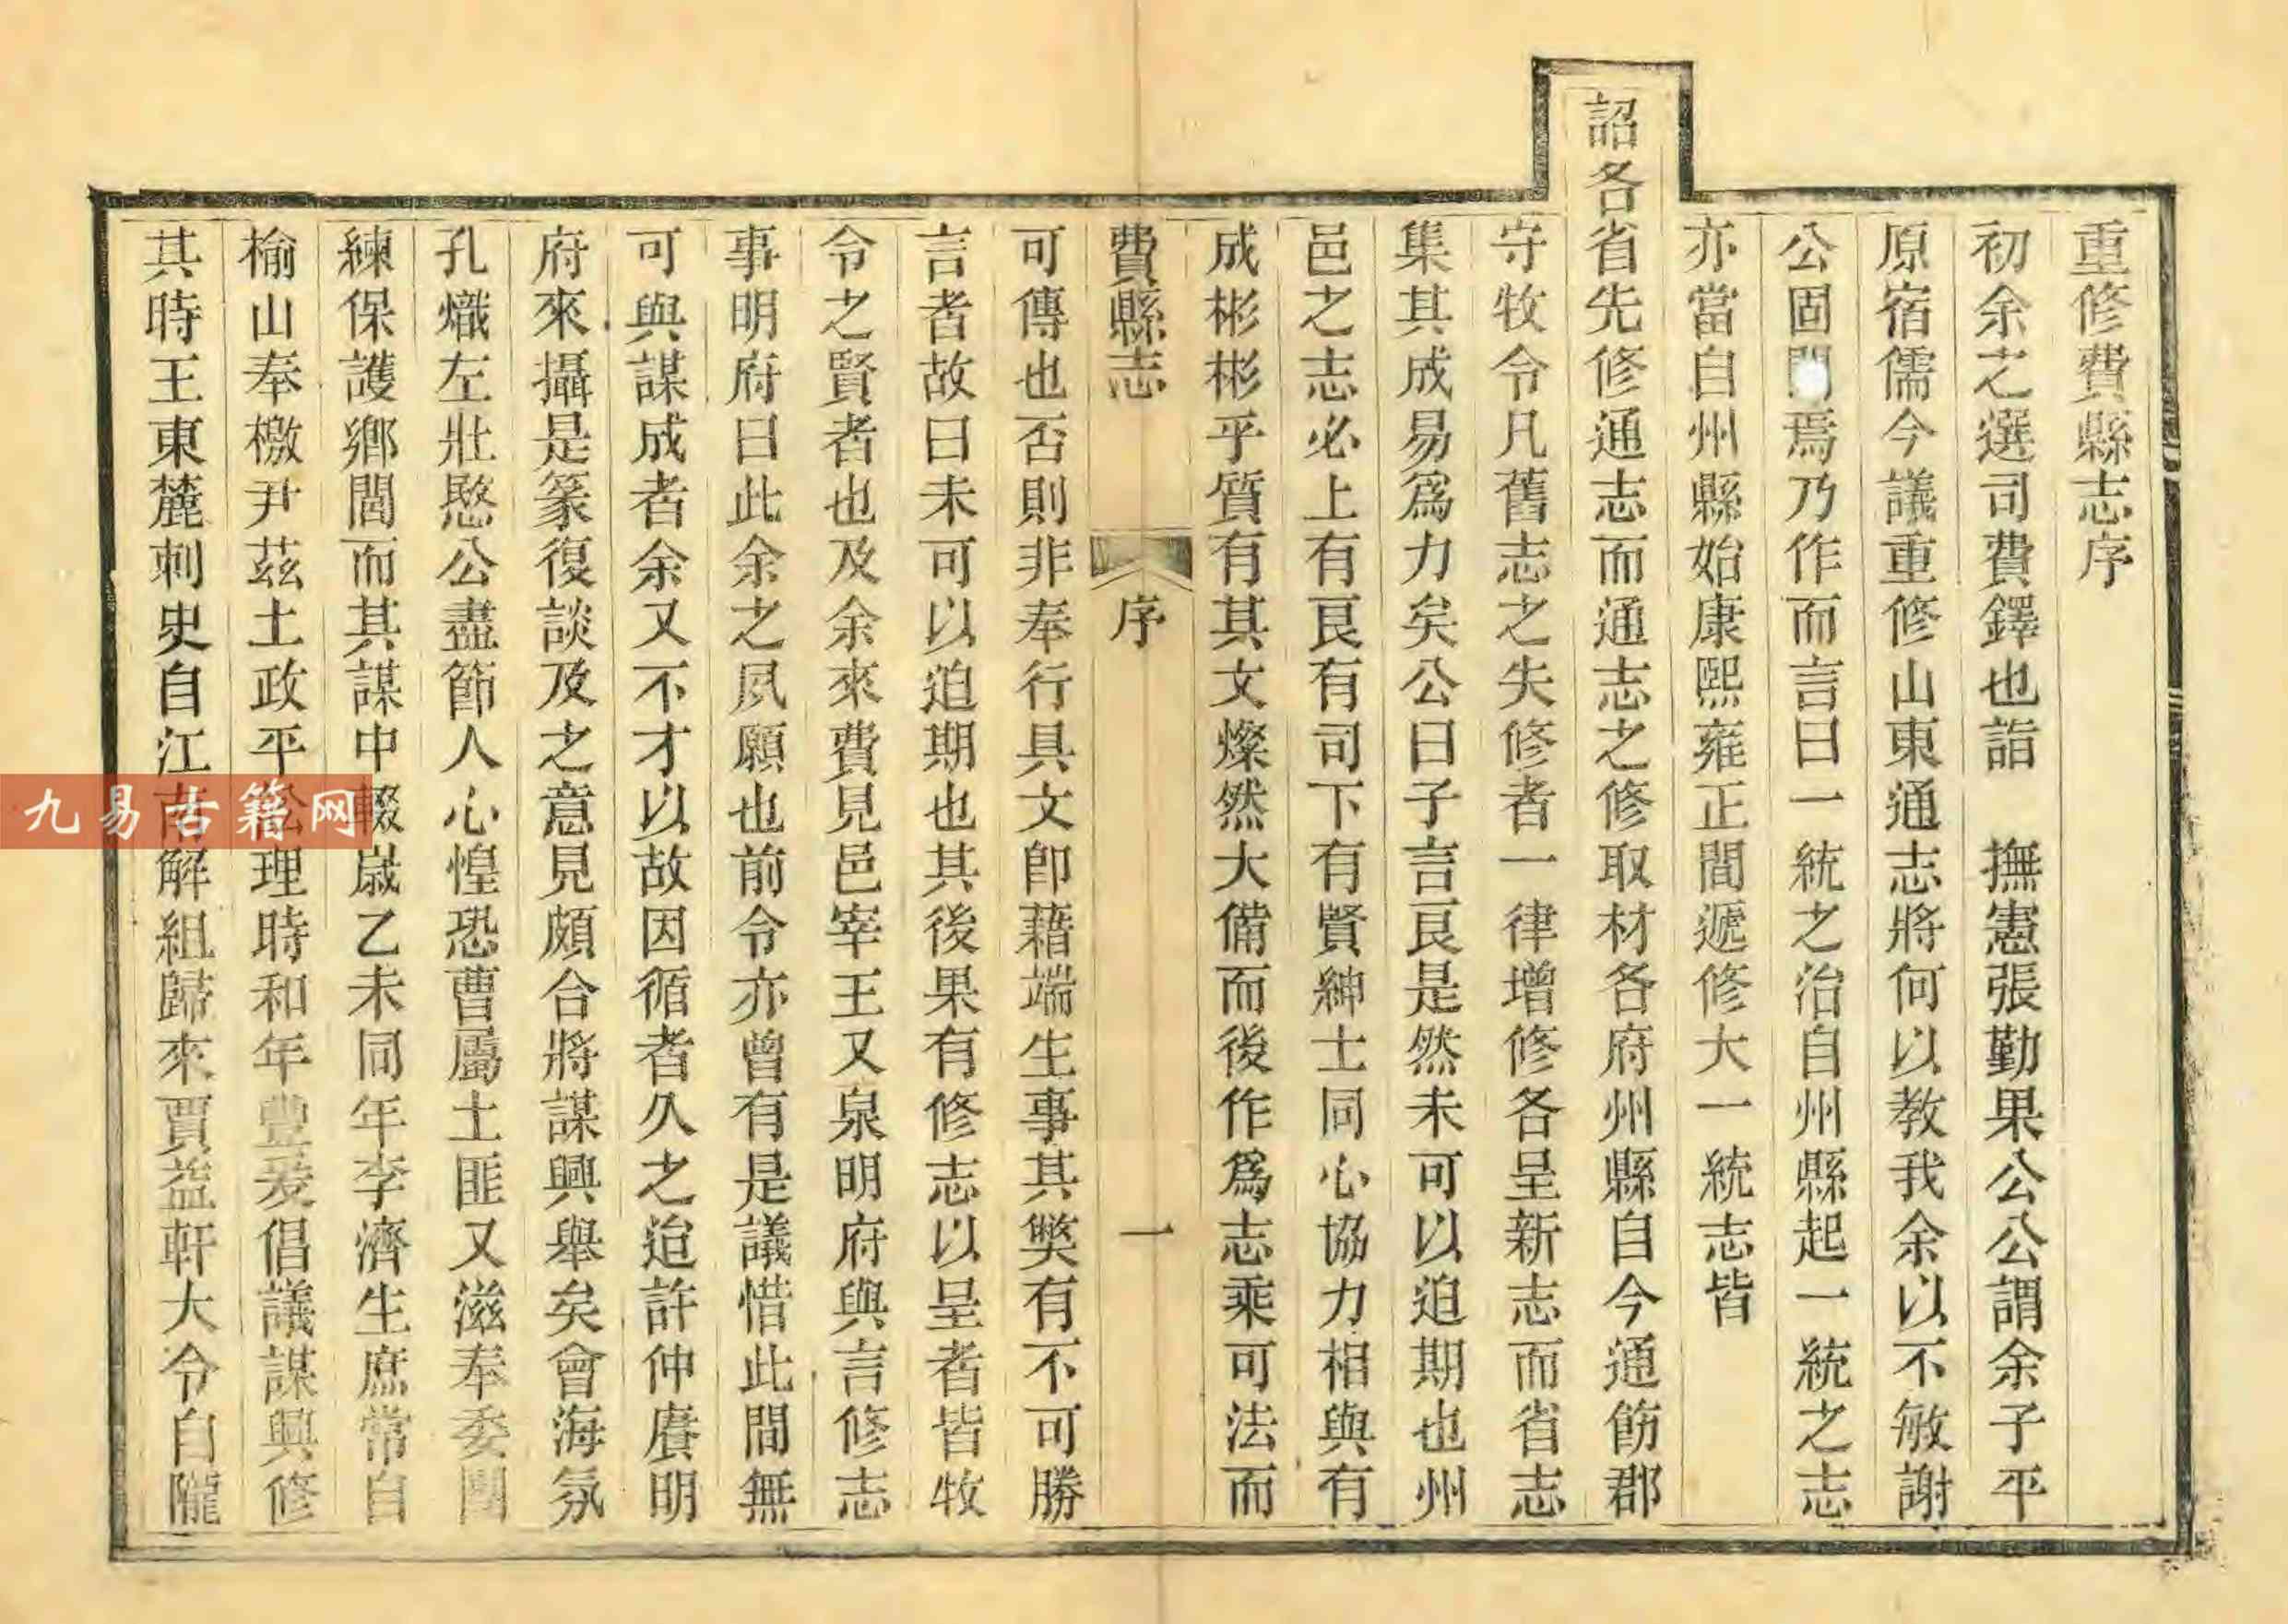 重修費縣志序
初余之選司費鐸也詣　撫憲張勤果公公謂余子平
原宿儒今議重修山東通志將何以教我余以不敏謝
公固焉乃作而言曰一統之治自州縣起一統之志
亦當自州縣始康熙雍正間遞修大一統志皆
詔各省先修通志而通志之修取材各府州縣自今通飭郡
守牧令凡舊志之失修者一律增修各呈新志而省志
集其成易爲力矣公曰子言良是然未可以迫期也州
邑之志必上有良有司下有賢紳士同心協力相與有
成彬彬乎質有其文燦然大備而後作爲志乘可法而
費縣志　序　一
可傳也否則非奉行具文卽藉端生事其獘有不可勝
言者故曰未可以迫期也其後果有修志以呈者皆牧
令之賢者也及余來費見邑宰王又泉明府與言修志
事明府曰此余之夙願也前令亦曾有是議惜此間無
可與謀成者余又不才以故因循者久之迨許仲賡明
府來攝是篆復談及之意見頗合將謀興舉矣會海氛
孔熾左壯愍公盡節人心惶恐曹屬土匪又滋奉委團
練保護鄉閭而其謀中輟嵗乙未同年李濟生庶常自
榆山奉檄尹茲土政平訟理時和年豐爰倡議謀興修
其時王東麓刺史自江南解組歸來賈益軒大令自隴
九易古籍网